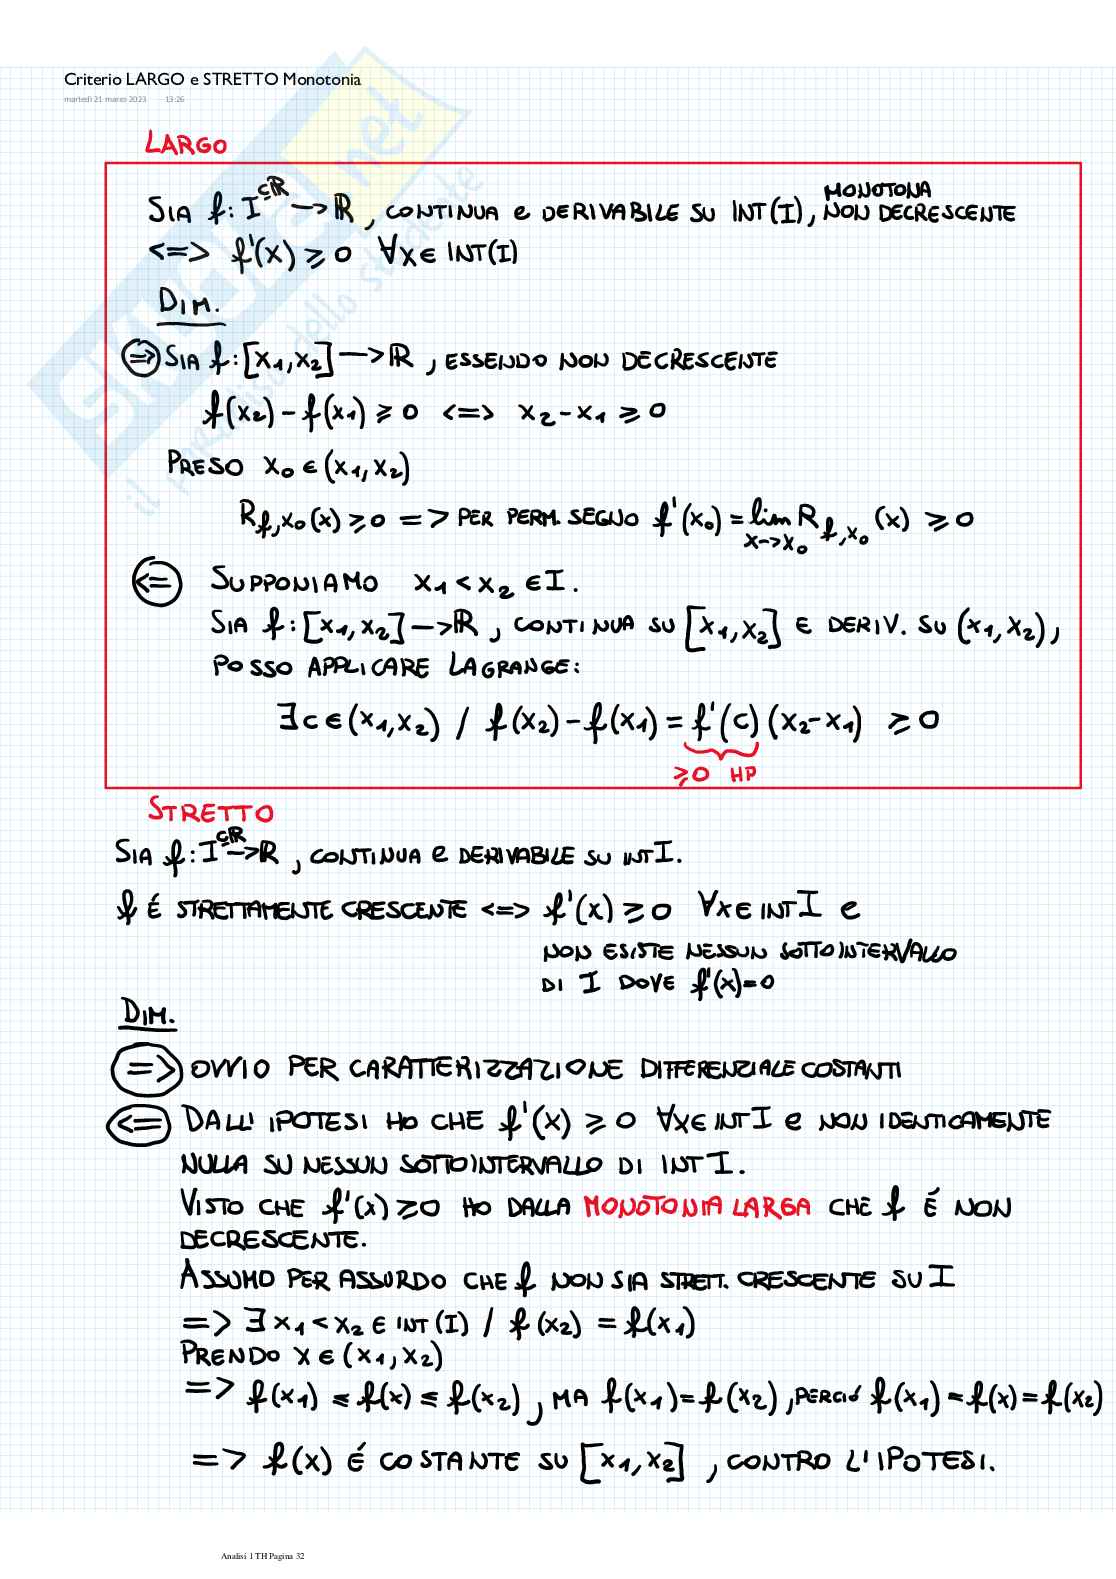 Criterio LARGO e STRETTO Monotonia
martedì 21 marzo 2023 13:26
LARGO
SIA f: I⊆ℝ —> ℝ, CONTINUA e DERIVABILE SU INT(I), MONOTONA NON DECRESCENTE
<=> f'(x) ⩾ 0 ∀x∈ INT(I)
DIM.
=> SIA f: [x₁, x₂] —> ℝ, ESSENDO NON DECRESCENTE
f(x₂) - f(x₁) ⩾ 0 <=> x₂ - x₁ ⩾ 0
PRESO x₀ ∈ (x₁, x₂)
R_{f,x₀}(x) ⩾ 0 => PER PERM. SEGNO f'(x₀) = lim_{x->x₀} R_{f,x₀}(x) ⩾ 0
<= SUPPONIAMO x₁ < x₂ ∈ I.
SIA f: [x₁, x₂] —> ℝ, CONTINUA SU [x₁, x₂] E DERIV. SU (x₁, x₂),
POSSO APPLICARE LAGRANGE:
∃ c ∈ (x₁, x₂) / f(x₂) - f(x₁) = f'(c) (x₂ - x₁) ⩾ 0
⩾0 HP
STRETTO
SIA f: I⊆ℝ —> ℝ, CONTINUA e DERIVABILE SU INT I.
f É STRETTAMENTE CRESCENTE <=> f'(x) ⩾ 0 ∀x∈ INT I e
NON ESISTE NESSUN SOTTOINTERVALLO
DI I DOVE f'(x)=0
DIM.
=> OVVIO PER CARATTERIZZAZIONE DIFFERENZIALE COSTANTI
<= DALL' IPOTESI HO CHE f'(x) ⩾ 0 ∀x∈ INT I e NON IDENTICAMENTE
NULLA SU NESSUN SOTTOINTERVALLO DI INT I.
VISTO CHE f'(x) ⩾ 0 HO DALLA MONOTONIA LARGA CHE f É NON
DECRESCENTE.
ASSUMO PER ASSURDO CHE f NON SIA STRETT. CRESCENTE SU I
=> ∃ x₁ < x₂ ∈ INT(I) / f(x₂) = f(x₁)
PRENDO x ∈ (x₁, x₂)
=> f(x₁) ⩽ f(x) ⩽ f(x₂), MA f(x₁) = f(x₂), PERCIÓ f(x₁) = f(x) = f(x₂)
=> f(x) É COSTANTE SU [x₁, x₂], CONTRO L'IPOTESI.
Analisi 1 TH Pagina 32
SKUOLA.net
il paradiso dello studente